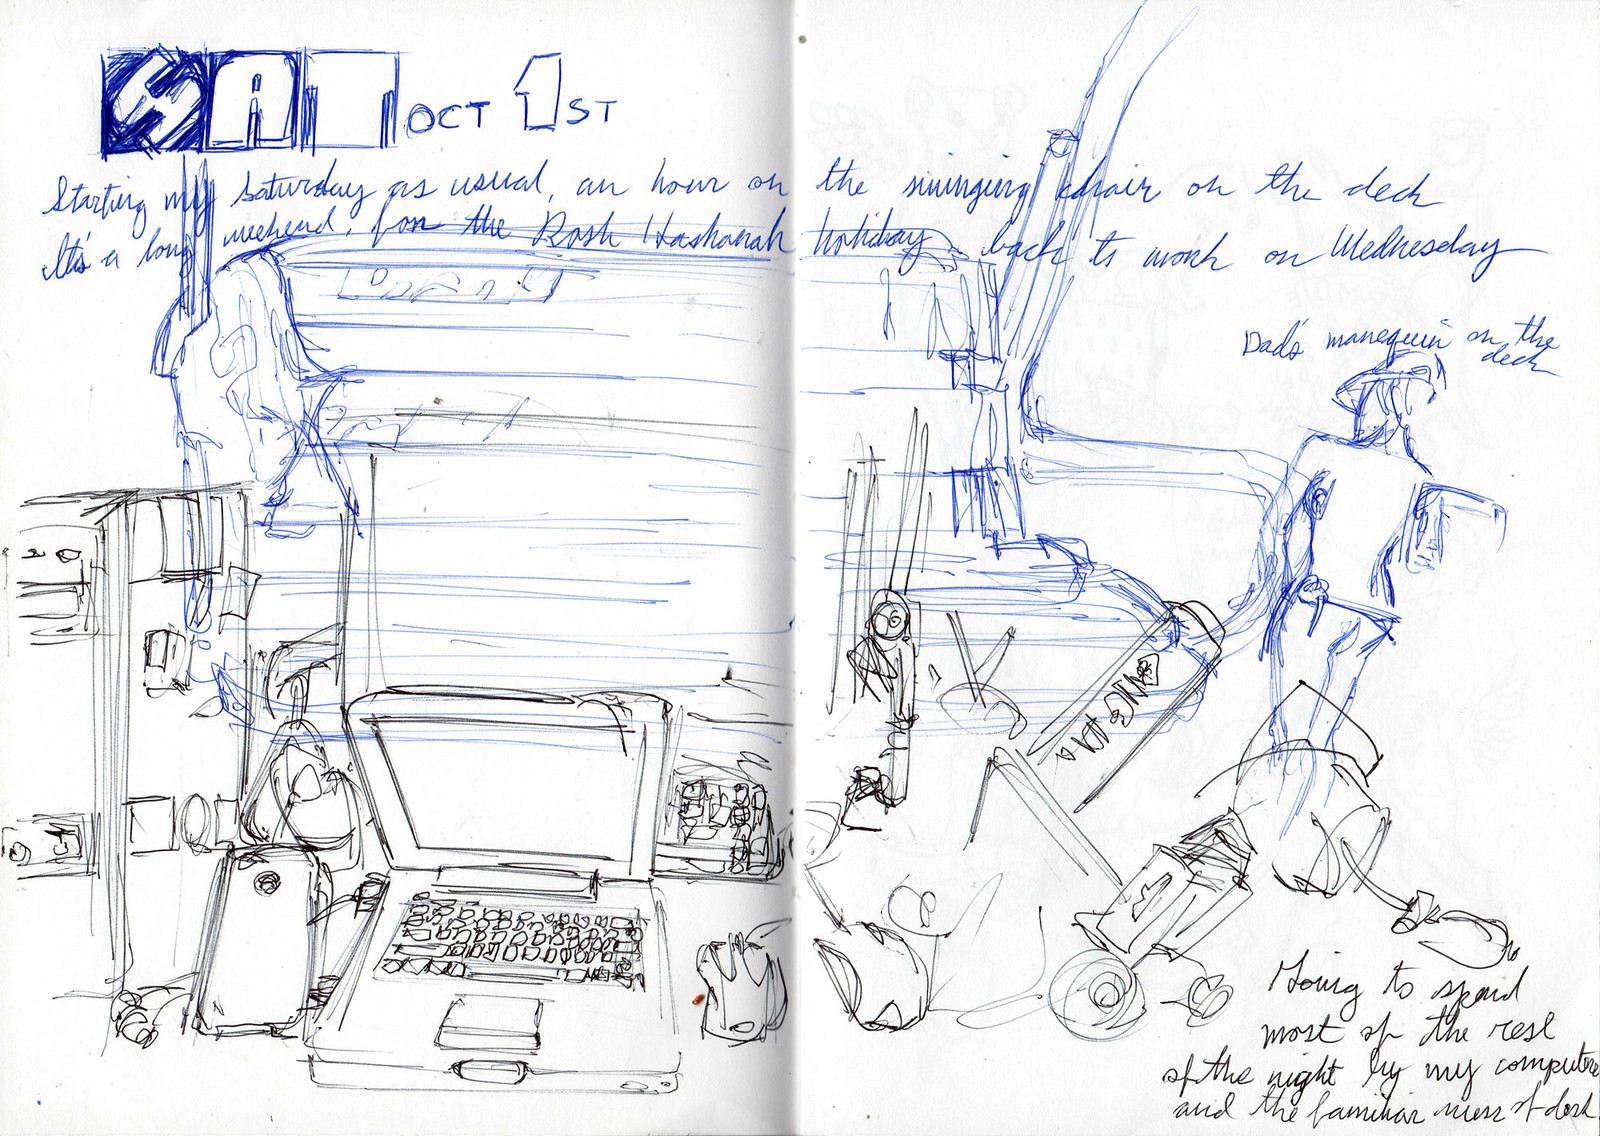 SAT OCT 1ST
Starting my Saturday as usual, an hour on the swinging chair on the deck
It's a long weekend, for the Rosh Hashanah holiday, back to work on Wednesday
Dad's manequin on the
deck
Going to spend
most of the rest
of the night by my computer
and the familiar mess of desk